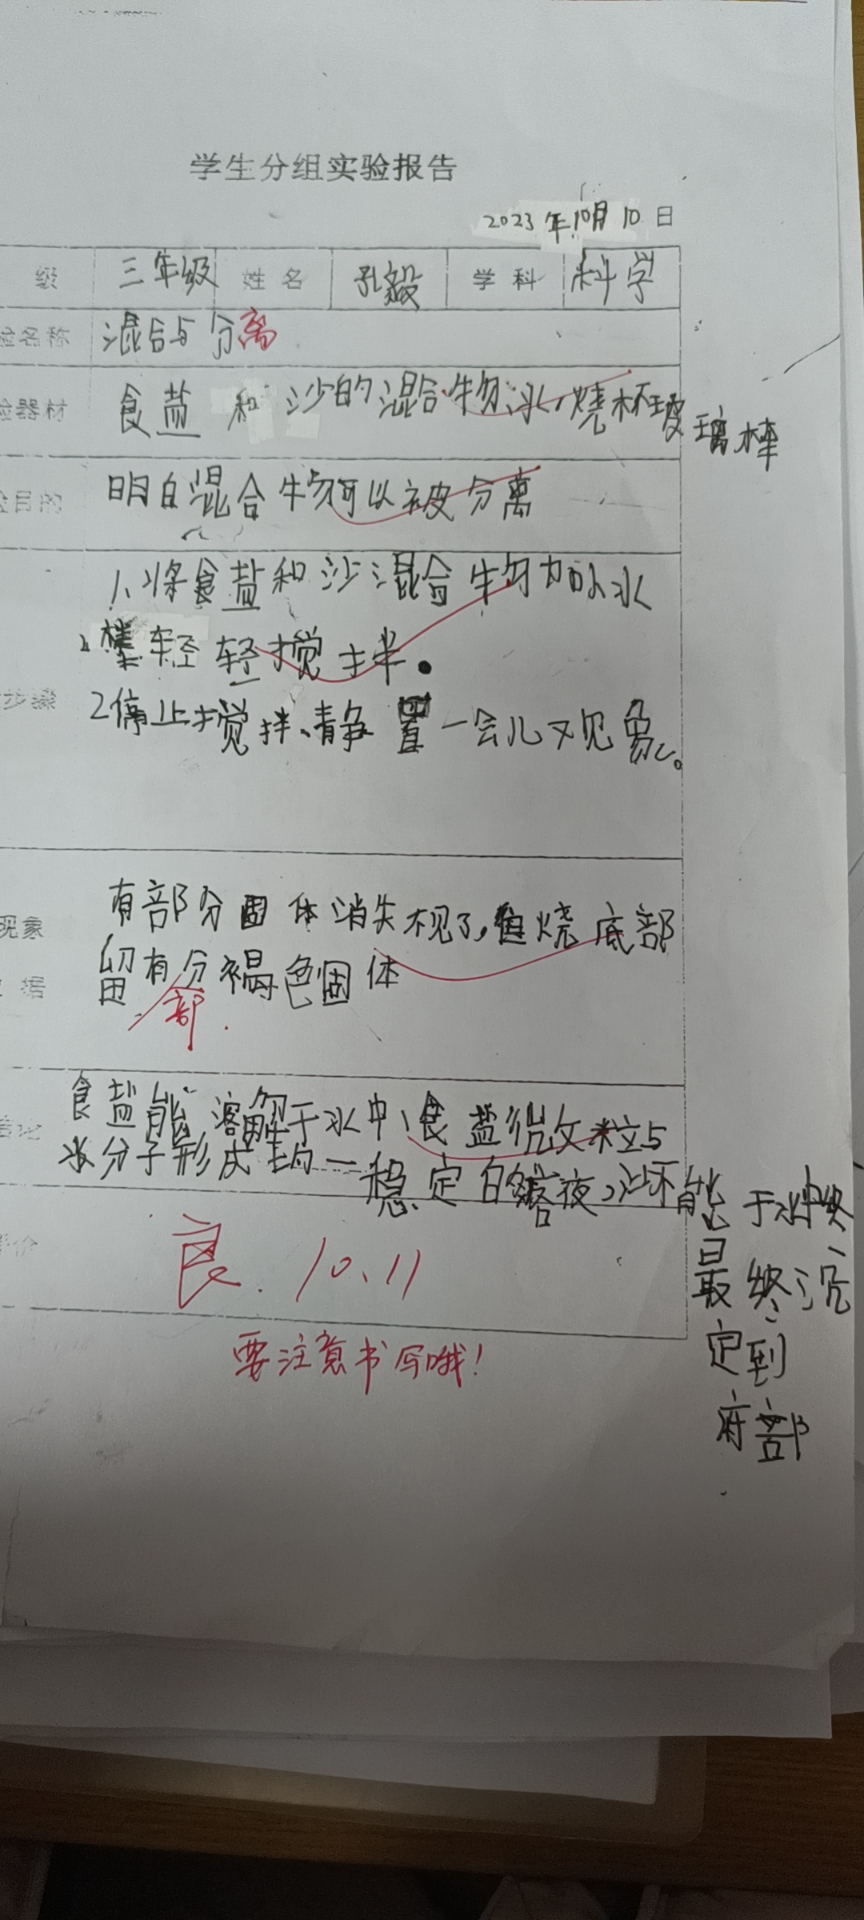 学生分组实验报告
2023年10月10日
级 三年级 姓名 孔毅 学科 科学
验名称 混合与分离
验器材 食盐和沙的混合物,水,烧杯玻璃棒
验目的 明白混合物可以被分离
1、将食盐和沙混合物加水
棒轻轻搅拌。
步骤
2停止搅拌、静置一会儿观象。
有部分固体消失不见了,但烧底部
现象
留有分褐色固体
据
部
食盐能溶解于水中,食盐微粒与
结论
水分子形成均一稳定的溶液,沙不能于水中
最终沉
定到
府部
评价
良. 10.11
要注意书写哦!